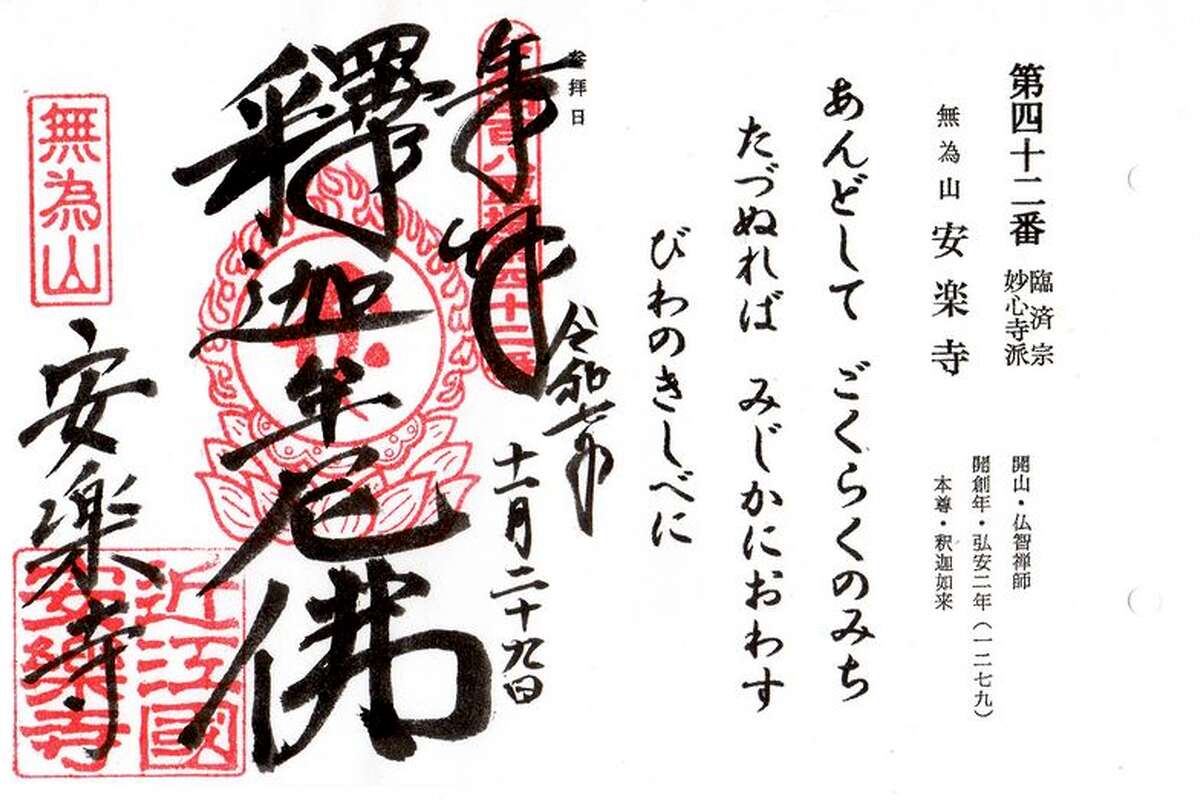 第四十二番
臨済宗
妙心寺派
無為山 安楽寺
開山・仏智禅師
開創年・弘安二年（一二七九）
本尊・釈迦如来
あんどして ごくらくのみち
たづぬれば みじかにおわす
びわのきしべに
参拝日
奉拝
令和七年
十一月二十九日
釋迦牟尼佛
無為山
安楽寺
近江國
安樂寺